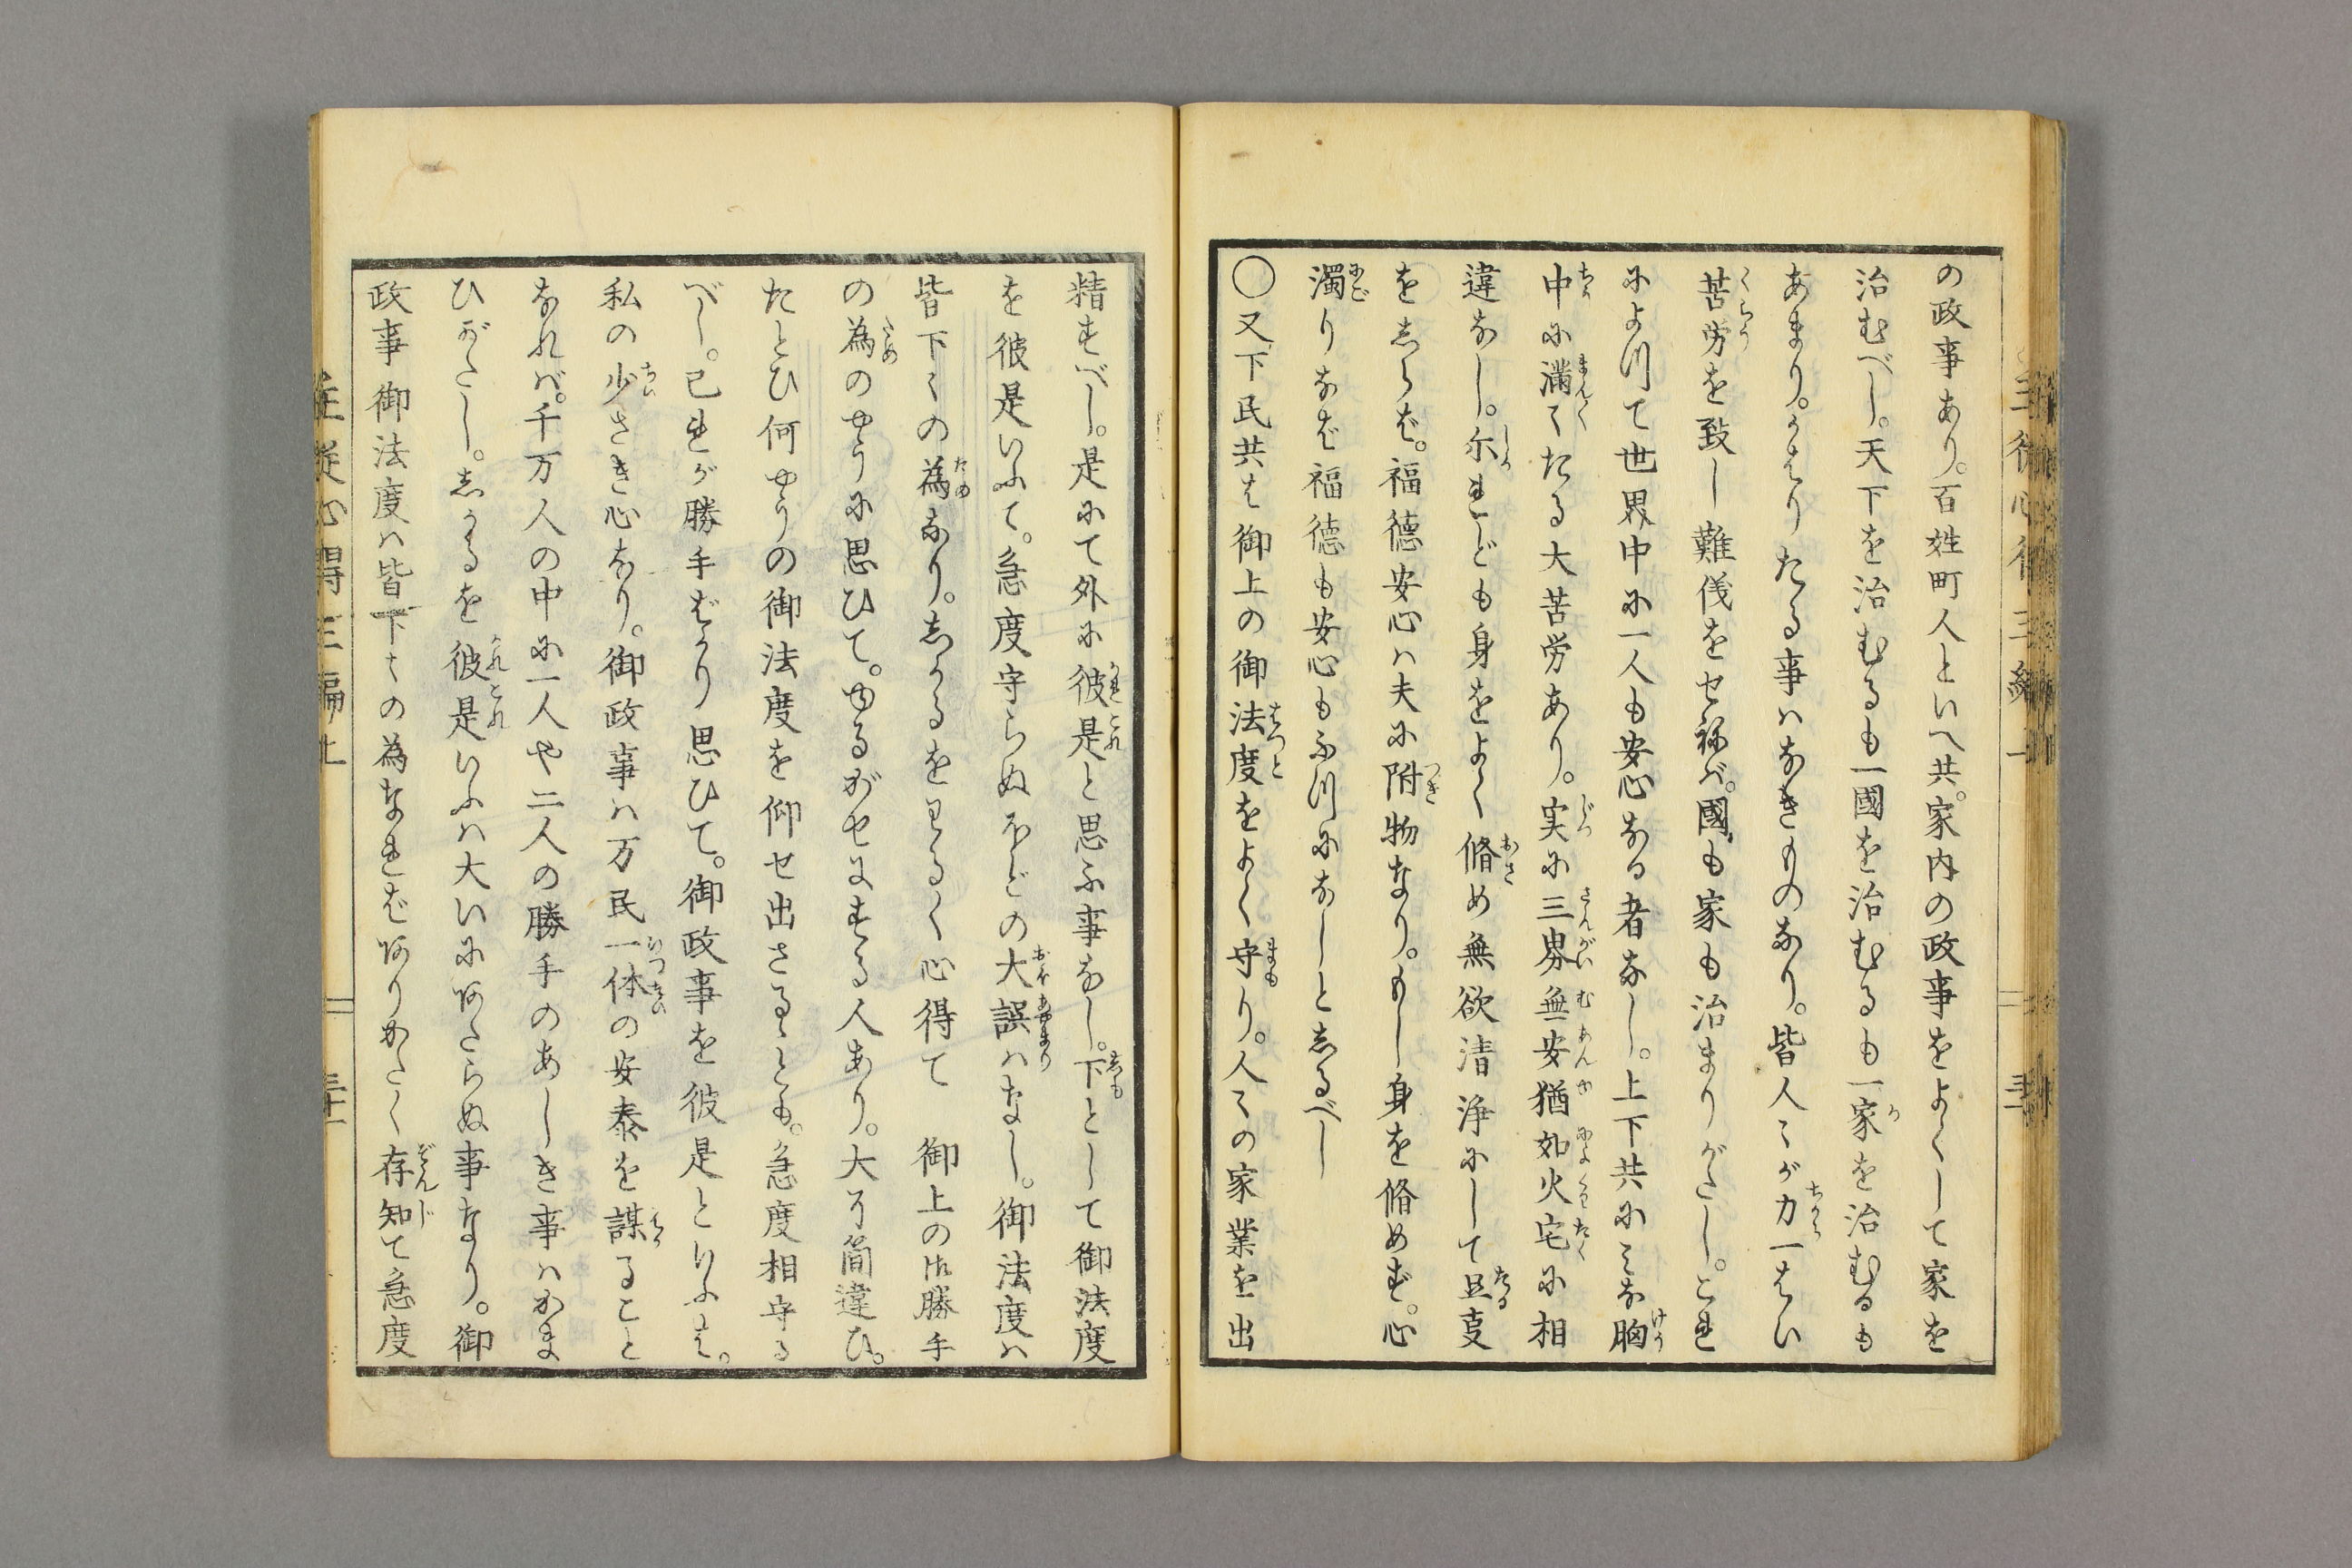 の政事あり。百姓町人といへ共。家内の政事をよくして家を
治むべし。天下を治むるも一國を治むるも一家を治むるも
あまり。かはりたる事ハなきものなり。皆人々が力一はい
苦労を致し難儀をせねバ。國も家も治まりがたし。これ
によつて世界中に一人も安心なる者なし。上下共にミな胸
中に満々たる大苦労あり。実に三界無安猶如火宅に相
違なし。尓れども身をよく脩め無欲清浄にして足事
をしらば。福徳安心ハ夫に附物なり。もし身を脩めず。心
濁りなば福徳も安心もふつになしとしるべし
〇又下民共は御上の御法度をよく守り。人々の家業を出
精すべし。是にて外に彼是と思ふ事なし。下として御法度
を彼是いふて。急度守らぬほどの大誤ハなし。御法度ハ
皆下々の為なり。しかるをわるく心得て 御上の御勝手
の為のやうに思ひて。ゆるがせにする人あり。大了簡違ひ。
たとひ何やうの御法度を仰せ出さるゝとも。急度相守る
べし。己れが勝手ばかり思ひて。御政事を彼是といふは。
私の少さき心なり。御政事ハ万民一体の安泰を謀ること
なれバ。千万人の中に一人や二人の勝手のあしき事ハかま
ひがたし。しかるを彼是いふハ大いにあたらぬ事なり。御
政事御法度ハ皆下々の為なればありがたく存知て急度
心得三編上